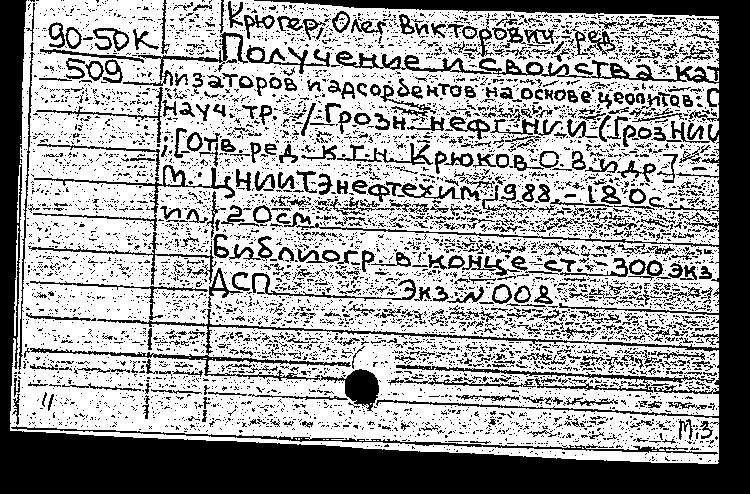 90-5DK
509
Крюгер, Олег Викторович, ред
Получение и свойства кат
лизаторов и адсорбентов на основе цеолитов: С
науч. тр. / Грозн. нефт. НИИ (ГрозНИИ
; [Отв. ред. к.т.н. Крюков О.В. и др.] —
М.: ЦНИИТЭнефтехим, 1988. - 180с
ил.; 20см.
Библиогр. в конце ст. - 300 экз
ДСП Экз. № 008
4
М.З.